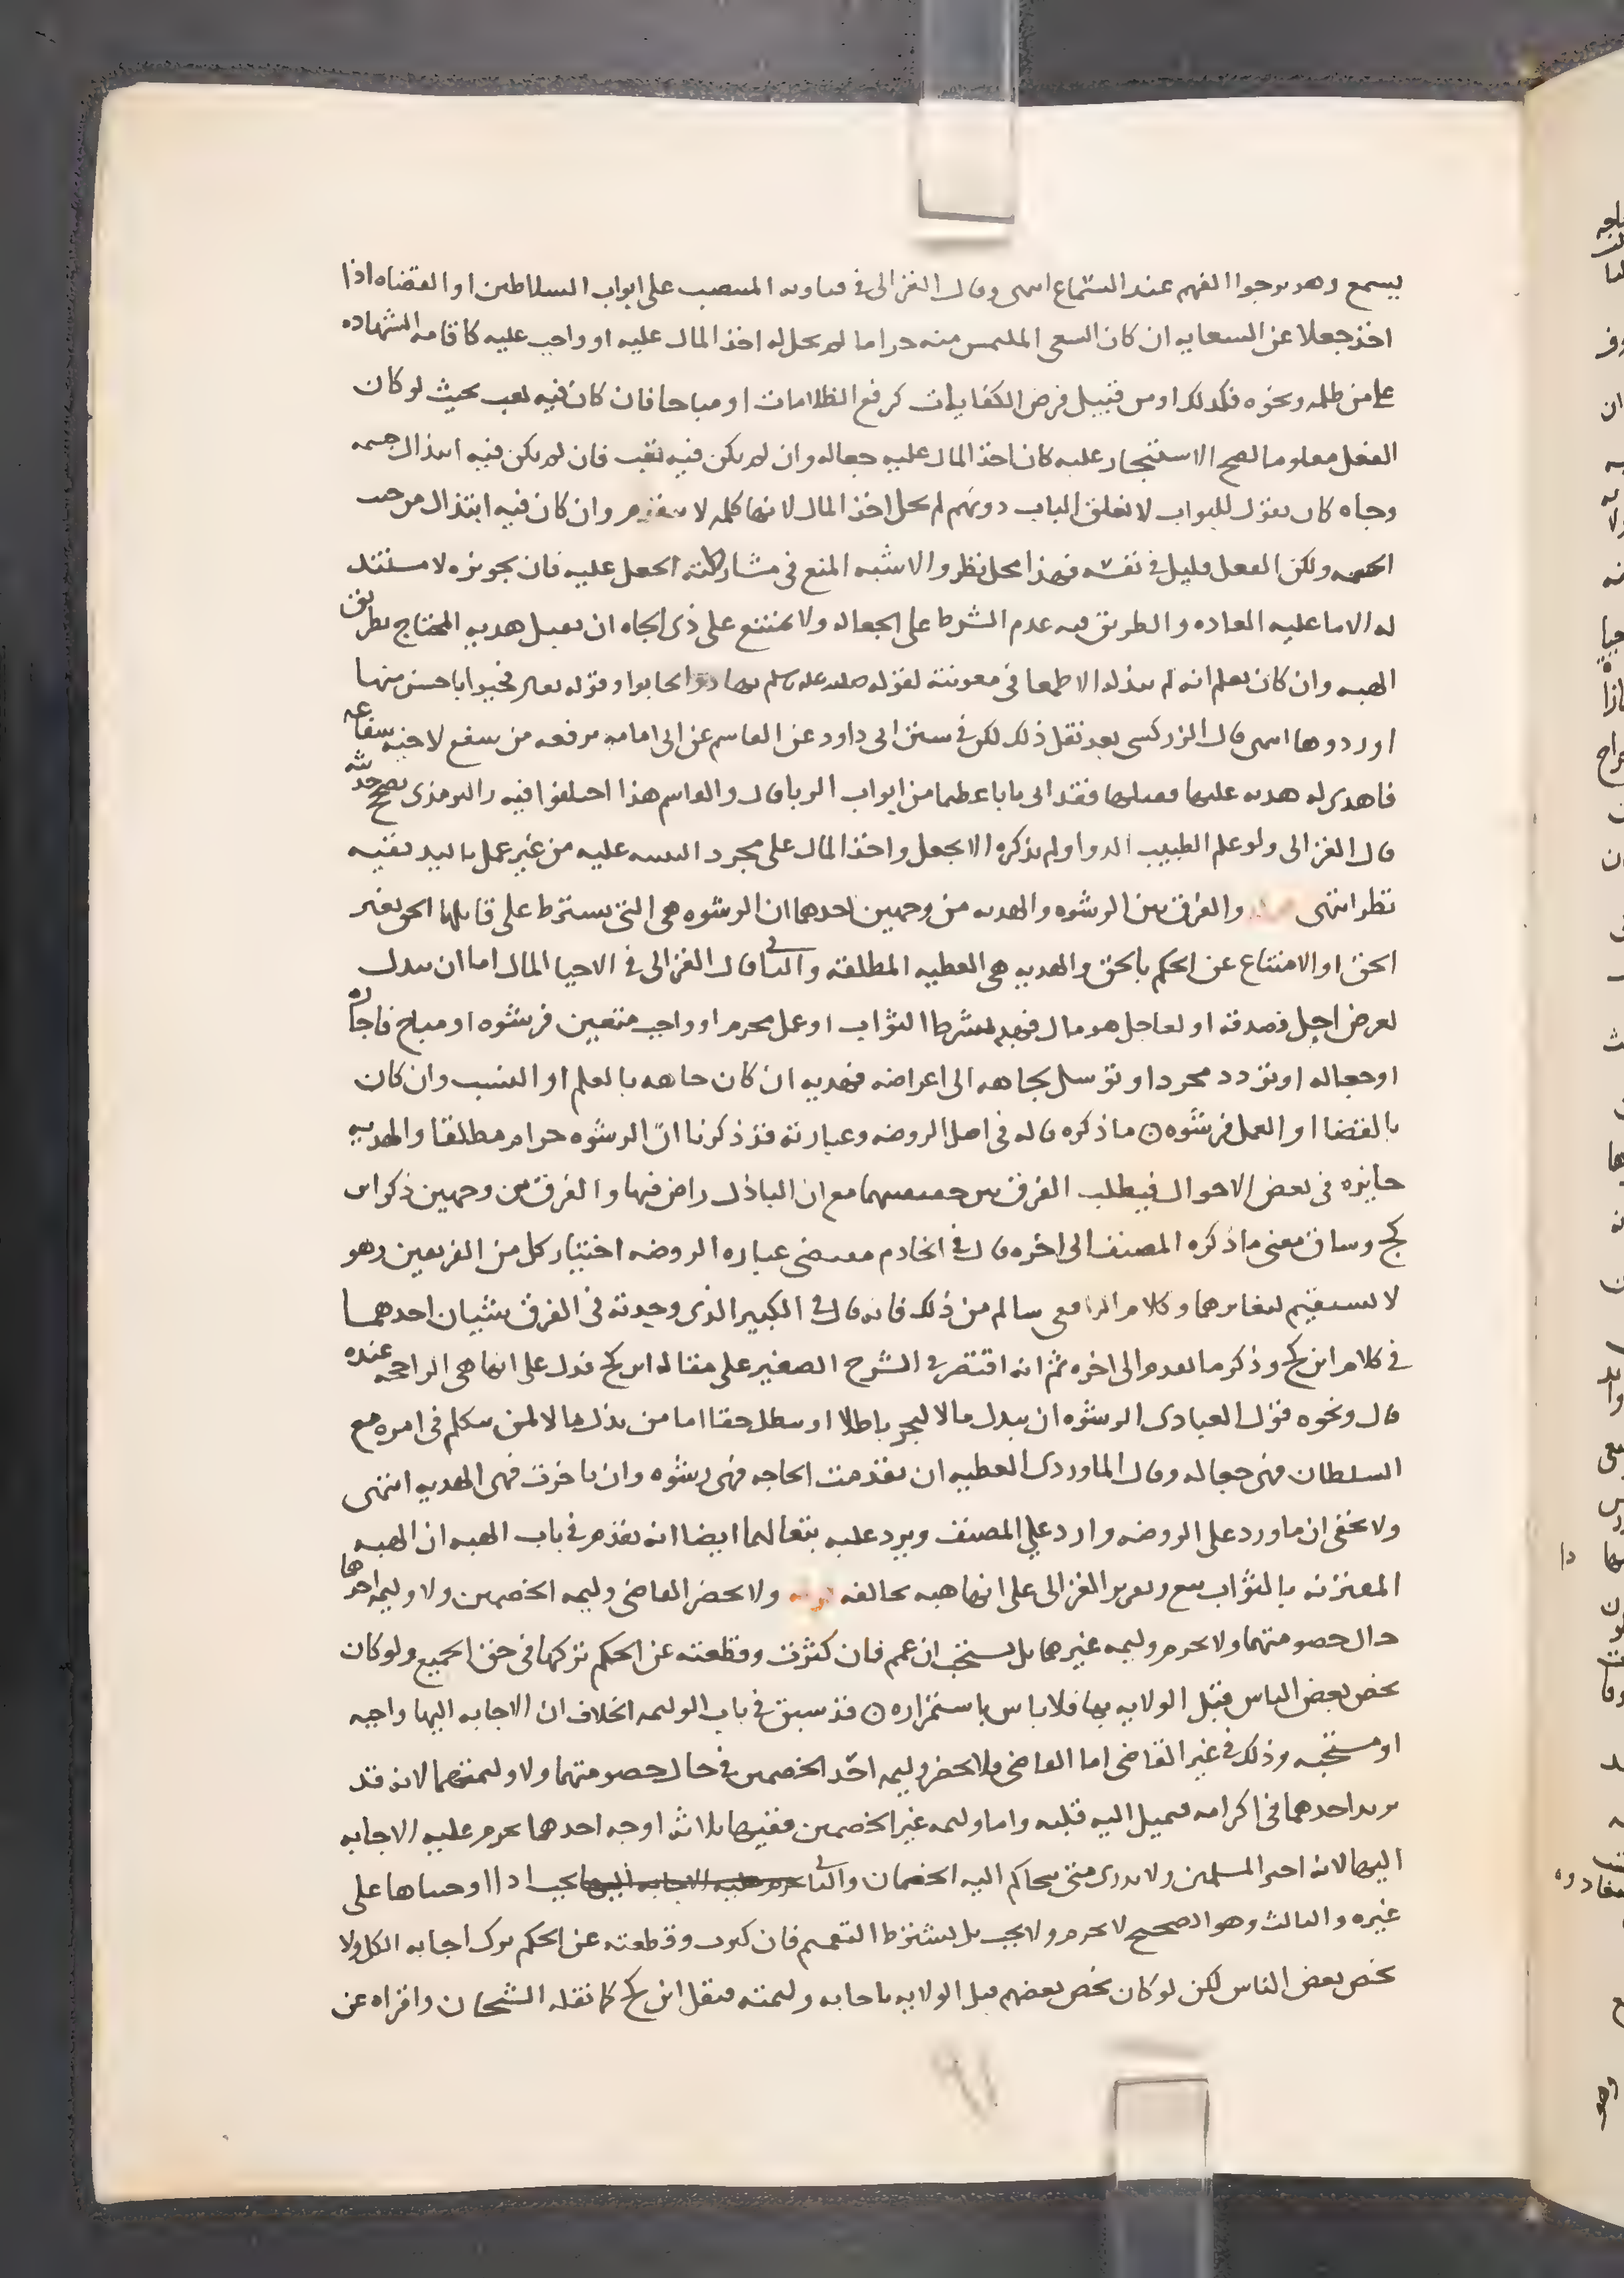 يسمع وهو يرجوا الفهم عند السماع انتهى وقال الغزالى في فتاويه المنتصب على ابواب السلاطين او القضاه اذا
اخذ جعلا عن السعايه ان كان السعى الملتمس منه حراما لم يحل له اخذ المال عليه او واجب عليه كاقامه الشهاده
على من ظلمه ونحوه فكذلك او من قبيل فرض الكفايات كرفع الظلامات او مباحا فان كان فيه تعب بحيث لو كان
الفعل معلوما لصح الاستئجار عليه كان اخذ المال عليه جعاله وان لم يكن فيه تعب فان لم يكن فيه ابتذال حسمه
وجاه كان يقول للبواب لا تغلق الباب دونهم لم يحل اخذ المال لانها كلمه لا وان كان فيه ابتذال من حيث
الحسمه ولكن الفعل قليل في نفسه فهذا محل نظر والاشبه المنع في مشاركته الجعل عليه فان تجويزه لا مستند
له الا ما عليه العاده والطريق فيه عدم الشرط على الجعاله ولا يمتنع على ذى الجاه ان يقبل هديه المحتاج بطريق
الهبه وان كان يعلم انه لم يبذله الا طمعا في معونته لقوله صلى الله عليه وسلم تهادوا تحابوا وقوله تعالى فحيوا باحسن منها
او ردوها انتهى قال الزركشى بعد نقل ذلك لكن في سنن ابى داود عن القاسم عن ابى امامه يرفعه من شفع لاخيه شفاعه
فاهدى له هديه عليها فقبلها فقد اتى بابا عظيما من ابواب الربا قال والقاسم هذا اختلفوا فيه والترمذى يصحح حديثه
قال الغزالى ولو علم الطبيب الدوا ولم يذكره الا بجعل واخذ المال على مجرد التنبيه عليه من غير عمل باليد ففيه
نظر انتهى والفرق بين الرشوه والهديه من وجهين احدهما ان الرشوه هى التى يشترط على قابلها الحكم بغير
الحق او الامتناع عن الحكم بالحق والهديه هى العطيه المطلقه والثانى قال الغزالى في الاحيا المال اما ان يبذل
لغرض اجل فصدقه او لعاجل هو مال فهبه بشرط الثواب او عمل محرم او واجب متعين فرشوه او مباح فاجاره
او جعاله او تودد مجرد او توسل بجاهه الى اغراضه فهديه ان كان جاهه بالعلم او النسب وان كان
بالقضا او العمل فرشوه ن ما ذكره قاله في اصل الروضه وعبارته قد ذكرنا ان الرشوه حرام مطلقا والهديه
جايزه في بعض الاحوال فيطلب الفرق بين حقيقتهما مع ان الباذل راض فيها والفرق من وجهين ذكر ابن
كج وساق معنى ما ذكره المصنف الى اخره قال في الخادم مقتضى عباره الروضه اختيار كل من الفريقين وهو
لا يستقيم لتغايرهما وكلام الرافعى سالم من ذلك فانه قال في الكبير الذى وجدته في الفرق شيئان احدهما
في كلام ابن كج وذكر ما تقدم الى اخره ثم انه اقتصر في الشرح الصغير على مقاله ابن كج فدل على انها هى الراجحه عنده
قال ونحوه قول العبادى الرشوه ان يبذل مالا ليجر باطلا او يبطل حقا اما من بذل مالا لمن يتكلم في امره مع
السلطان فهى جعاله وقال الماوردى العطيه ان تقدمت الحاجه فهى رشوه وان تاخرت فهى الهديه انتهى
ولا يخفى ان ما ورد على الروضه وارد على المصنف ويرد عليه بتعالهما ايضا انه تقدم في باب الهبه ان الهبه
المقترنه بالثواب بيع وتقرير الغزالى على انها هبه يخالفه ولا يحضر القاضى وليمه الخصمين ولا وليمه احدهما
حال خصومتهما ولا تحرم وليمه غيرهما بل يستحب ان عمم فان كثرت وقطعته عن الحكم تركها في حق الجميع ولو كان
يخص بعض الناس قبل الولايه بها فلا باس باستمراره ن قد سبق في باب الوليمه الخلاف ان الاجابه اليها واجبه
او مستحبه وذلك في غير القاضى اما القاضى فلا يحضر وليمه احد الخصمين في حال خصومتهما ولا وليمتهما لانه قد
يزيد احدهما في اكرامه فيميل اليه قلبه واما وليمه غير الخصمين ففيها ثلاثه اوجه احدها يحرم عليه الاجابه
اليها لانه اجير المسلمين ولا يدرى متى يتحاكم اليه الخصمان والثانى يجب اذا اوجبناها على
غيره والثالث وهو الصحيح لا يحرم ولا يجب بل بشرط التعميم فان كثرت وقطعته عن الحكم ترك اجابه الكل ولا
يخص بعض الناس لكن لو كان يخص بعضهم قبل الولايه باجابه وليمته فنقل ابن كج كما نقله الشيخان واقراه عن